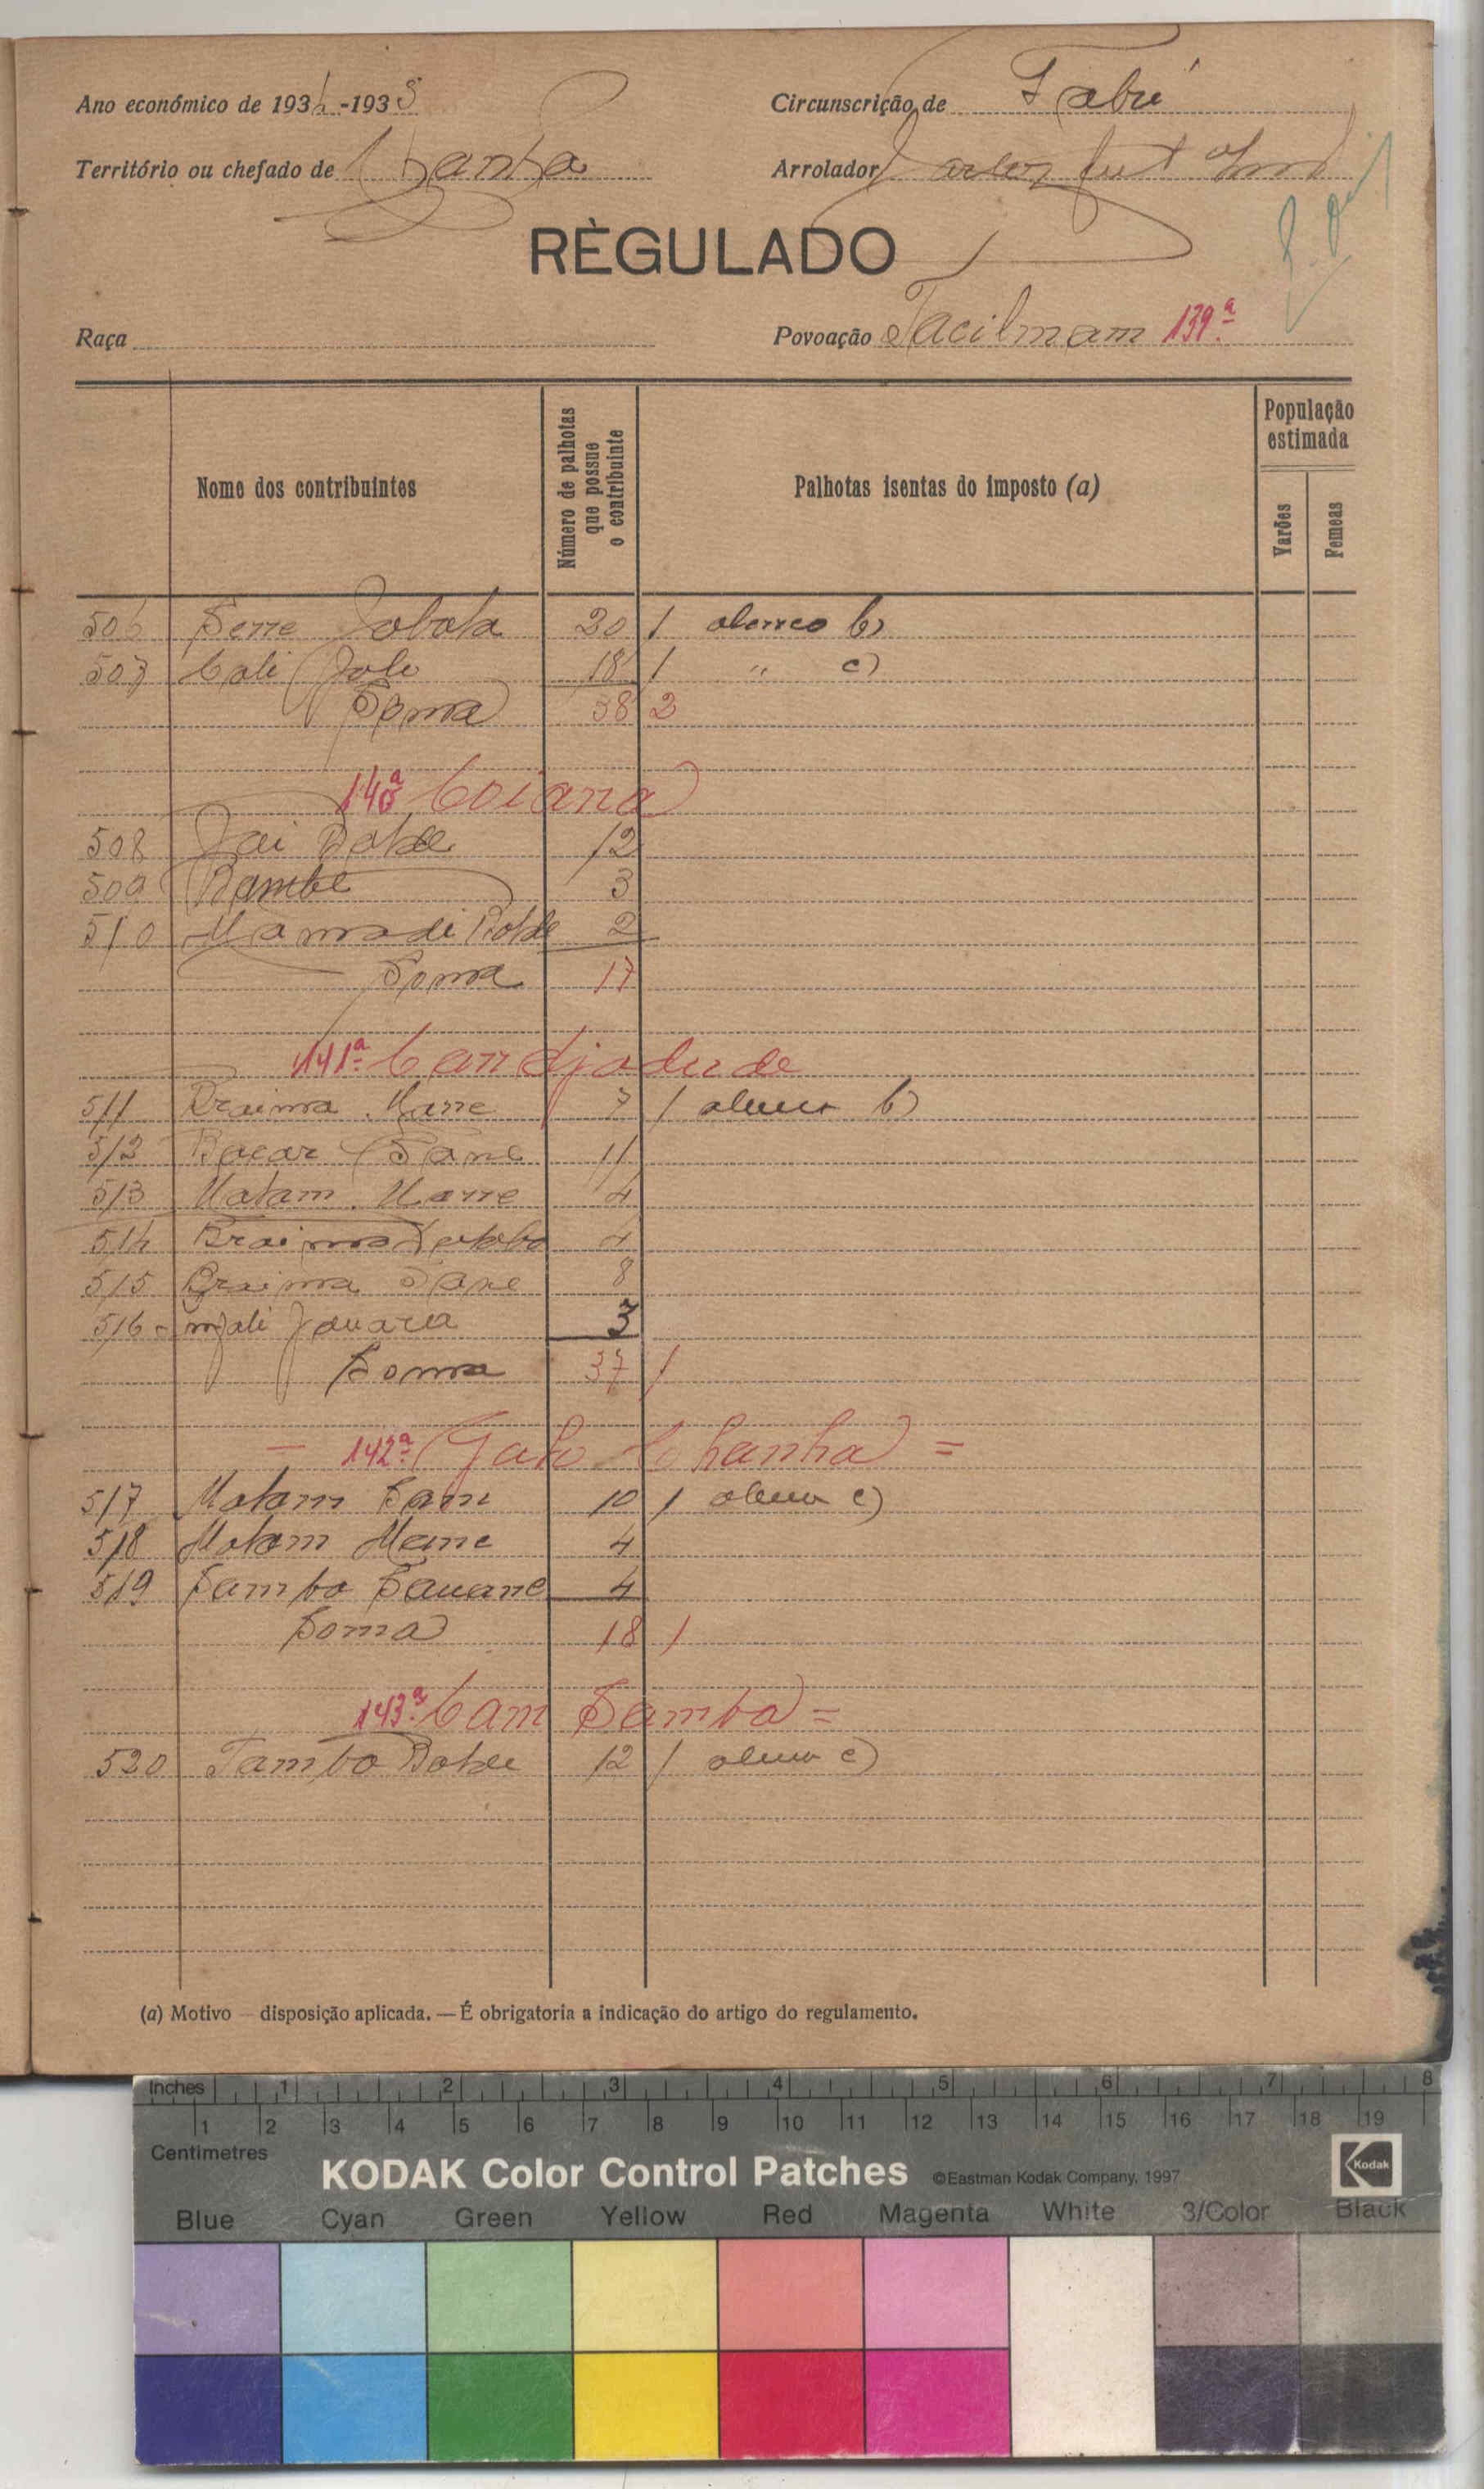 Ano económico de 1934-1935
Circunscrição de Gabú
Território ou chefado de
Arrolador Carlos
RÈGULADO
Raça
Povoação 139ª
Nome dos contribuintes
Número de palhotas que possue o contribuinte
Palhotas isentas do imposto (a)
População estimada
Varões
Femeas
506 20 1 alinea b)
507 Cali 18 1 " c)
Soma 38 2
140ª Coiana
508 Balde 12
509 Bambe 3
510 Mamadi Balde 2
Soma 17
141ª Candjadude
511 Braima Mane 7 1 alinea b)
512 Bacar Sane 11
513 Malam Mane 4
514 Braima 4
515 Braima Sane 8
516 Jauara 3
Soma 37 1
- 142ª =
517 Malam Sani 10 1 alinea c)
518 Malam Mane 4
519 Sambo Sauane 4
Soma 18 1
143ª Cam Samba =
520 Tambo Balde 12 1 alinea c)
(a) Motivo — disposição aplicada. — É obrigatoria a indicação do artigo do regulamento.
Inches 1 2 3 4 5 6 7 8
1 2 3 4 5 6 7 8 9 10 11 12 13 14 15 16 17 18 19
Centimetres
KODAK Color Control Patches ©Eastman Kodak Company, 1997 Kodak
Blue Cyan Green Yellow Red Magenta White 3/Color Black